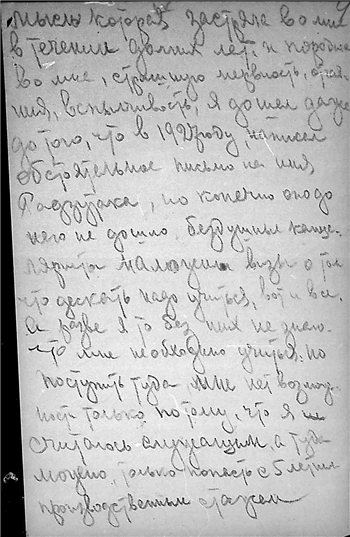 мысль которая застряла во мне
в течении долгих лет и породила
во мне, страшную нервность, отчая-
ния, вспыльчивость, я дошел даже
до того, что в 192 году, написал
обстоятельное письмо на имя
Рудзутака, но конечно оно до
него не дошло, бездушные канце-
ляристы наложили визы о том
что дескать надо учиться, вот и все.
А разве я то без них не знаю
что мне необходимо учиться. но
поступить туда мне нет возмож-
ност только потому, что я
считаюсь служащим, а туда
можно, только попасть с 5 летним
производственным стажем